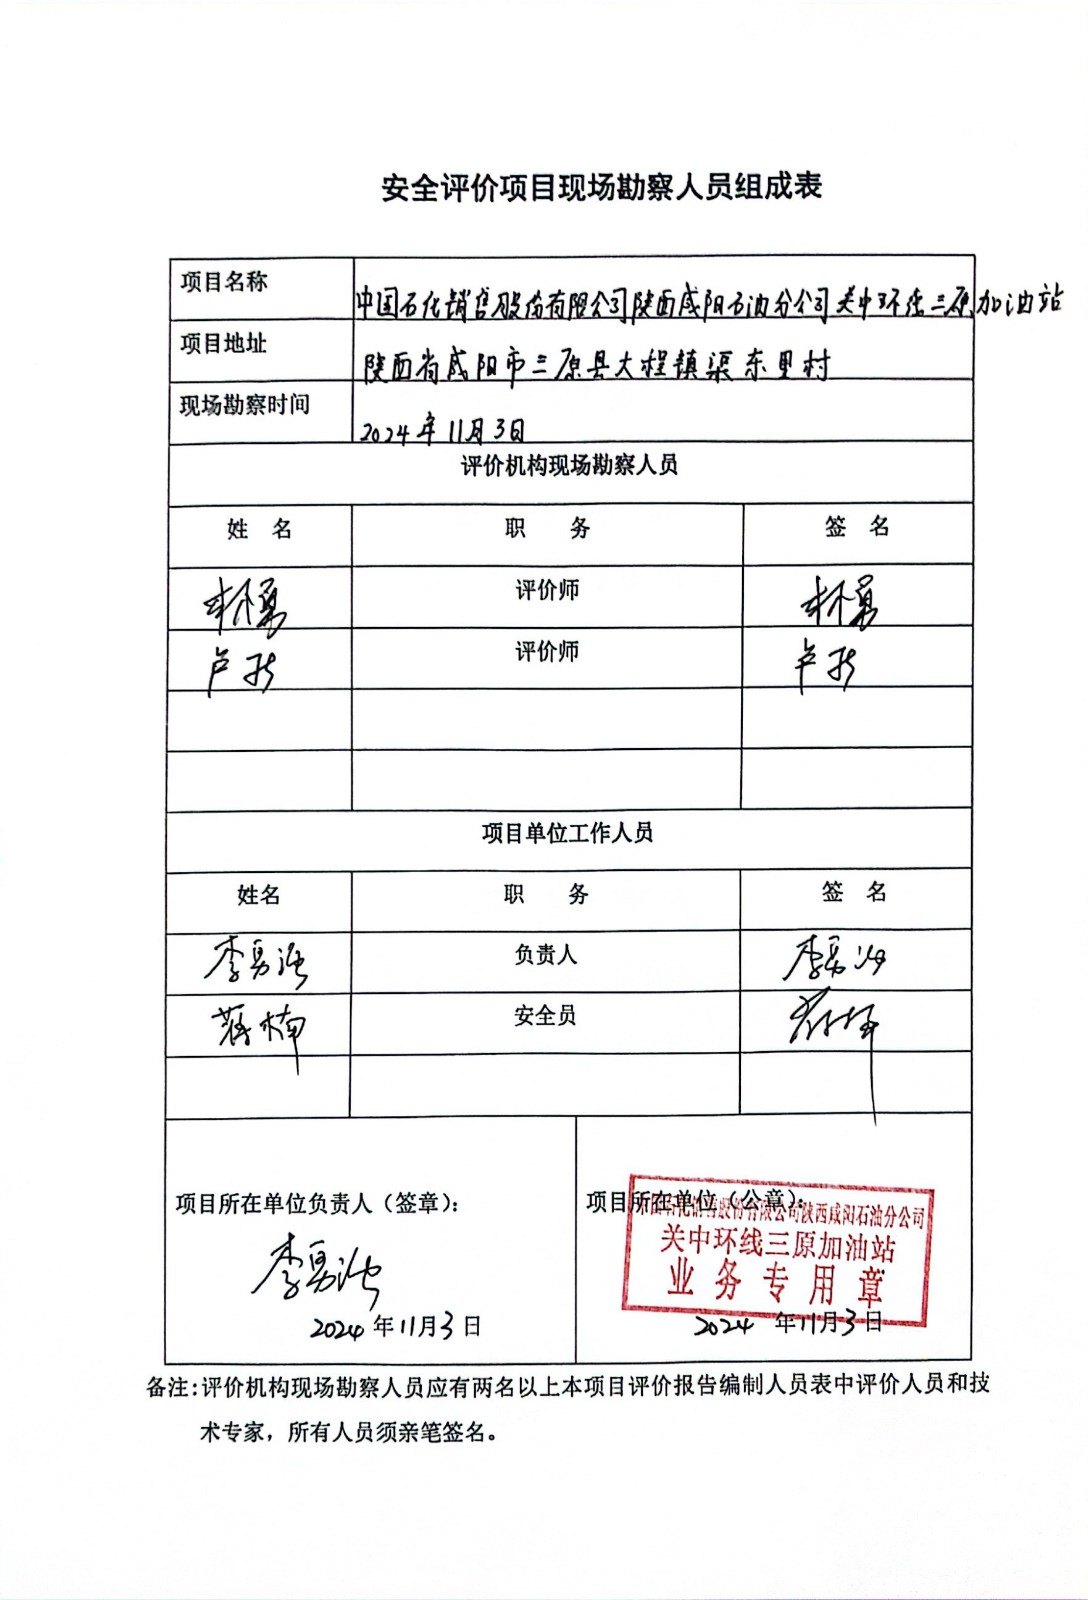 安全评价项目现场勘察人员组成表
项目名称 中国石化销售股份有限公司陕西咸阳石油分公司关中环线三原加油站
项目地址 陕西省咸阳市三原县大程镇渠东里村
现场勘察时间 2024年11月3日
评价机构现场勘察人员
姓 名 职 务 签 名
评价师
卢 评价师 卢
项目单位工作人员
姓名 职 务 签 名
李勇强 负责人 李勇强
蒋楠 安全员
项目所在单位负责人（签章）： 项目所在单位（公章）：
中国石化销售股份有限公司陕西咸阳石油分公司
关中环线三原加油站
业务专用章
李勇强
2024年11月3日 2024 年11月3日
备注:评价机构现场勘察人员应有两名以上本项目评价报告编制人员表中评价人员和技
术专家，所有人员须亲笔签名。